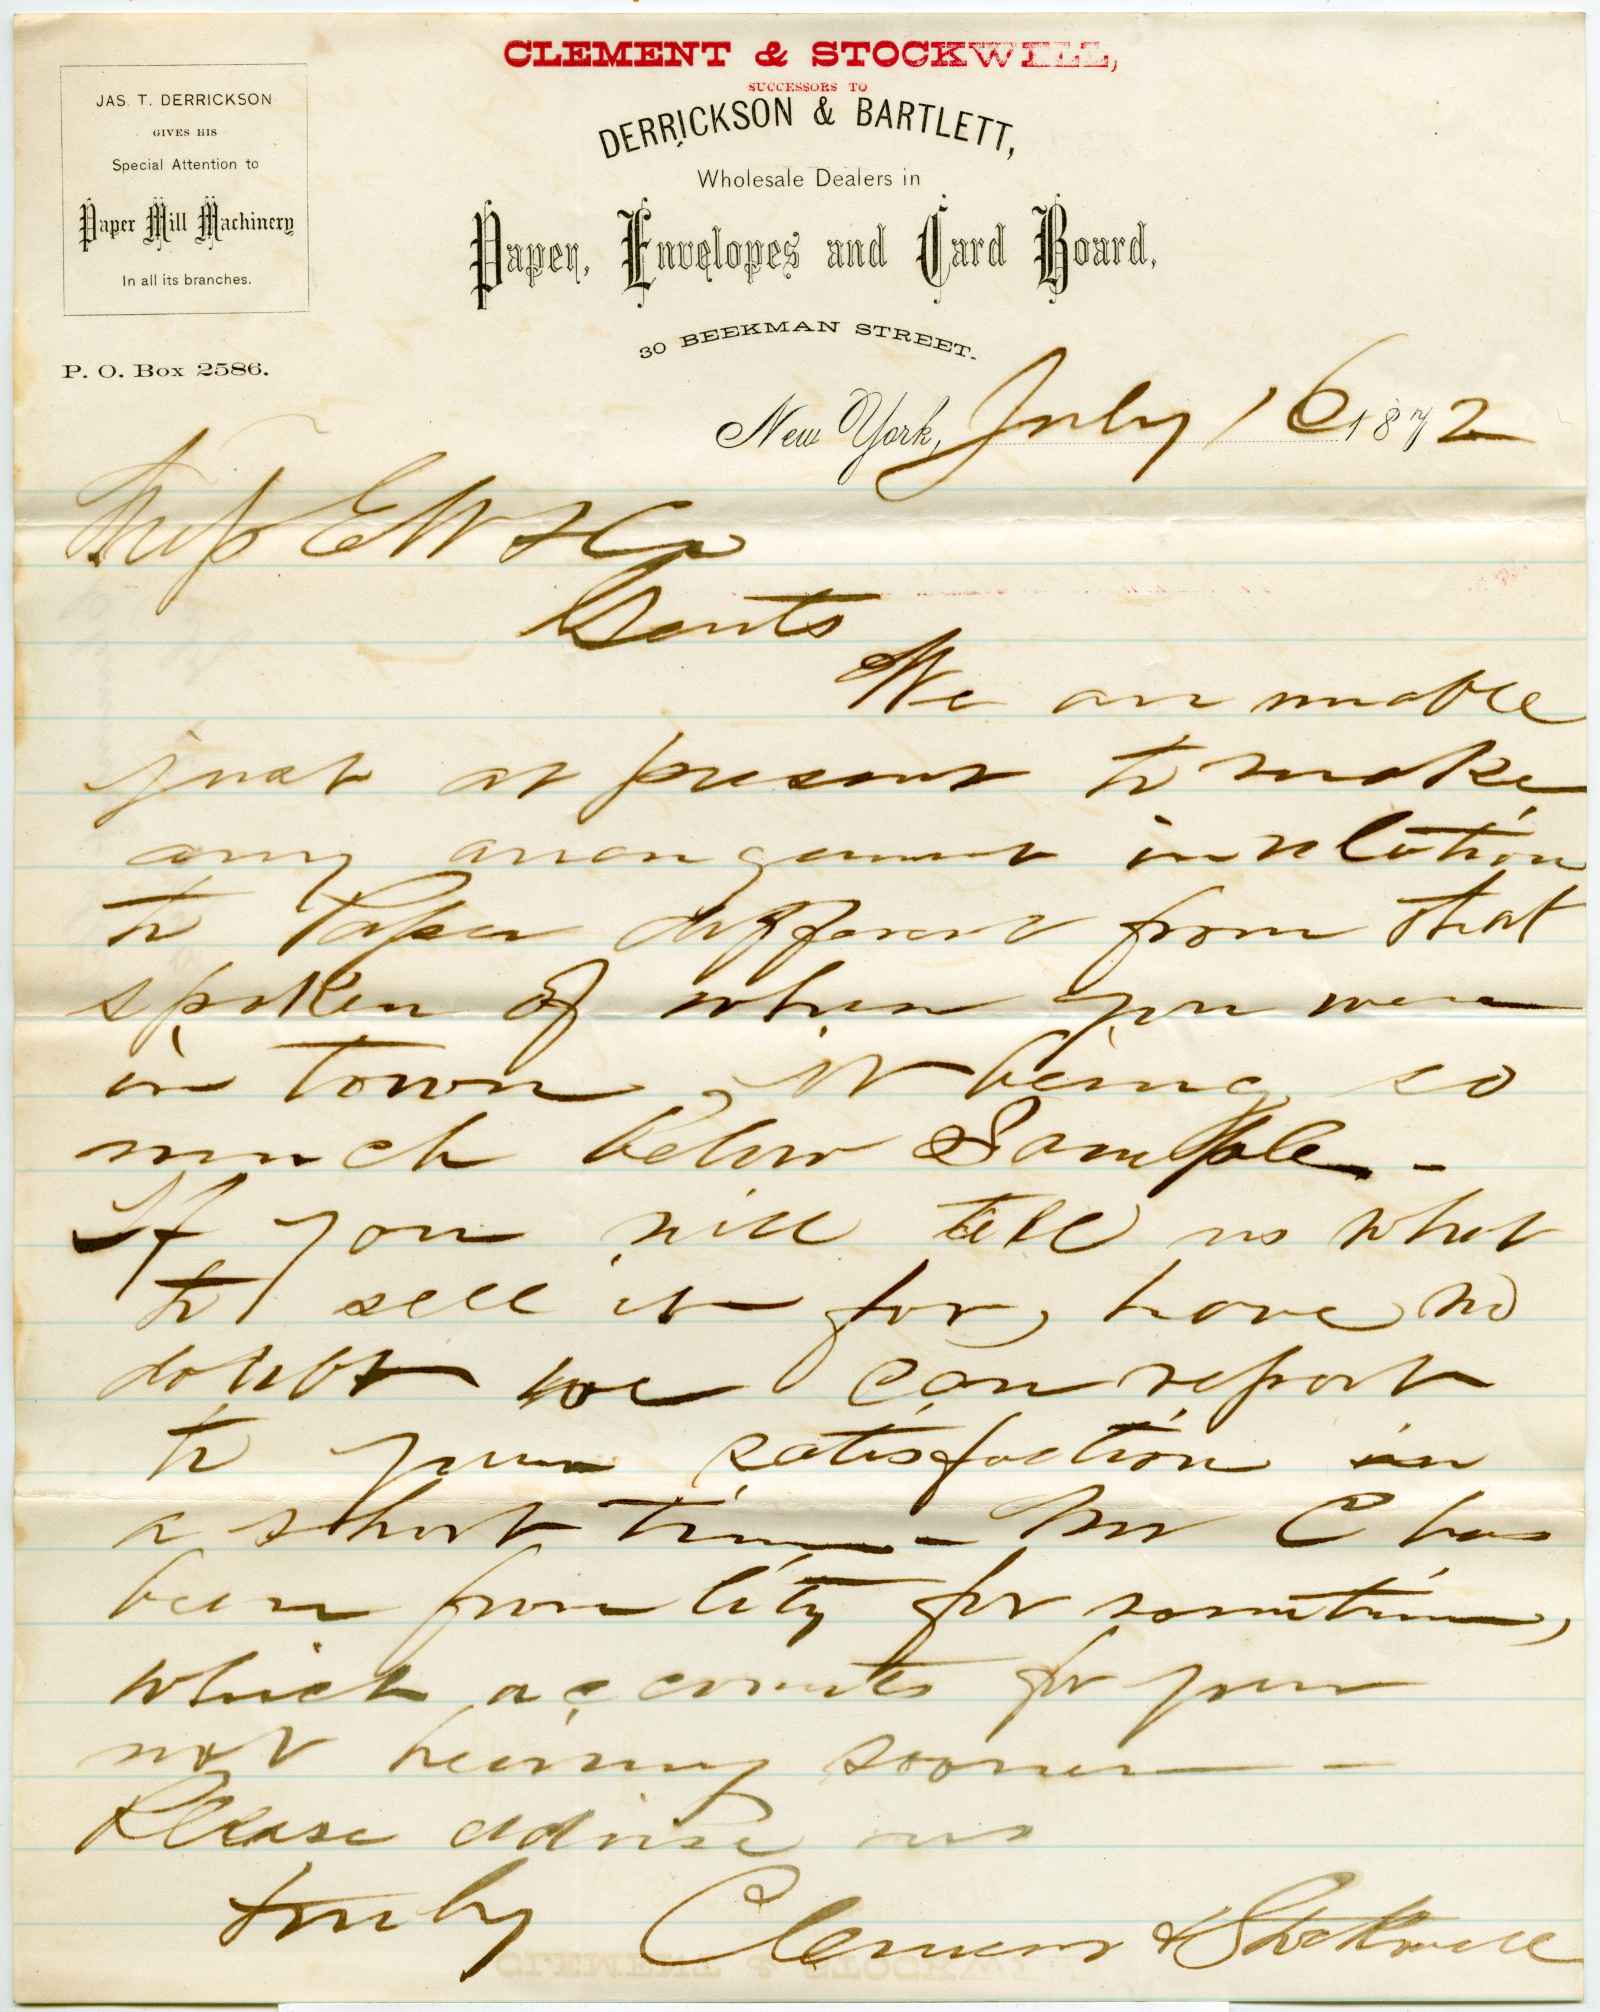 CLEMENT & STOCKWELL,
SUCCESSORS TO
DERRICKSON & BARTLETT,
Wholesale Dealers in
Paper, Envelopes and Card Board,
30 BEEKMAN STREET.
JAS. T. DERRICKSON
GIVES HIS
Special Attention to
Paper Mill Machinery
In all its branches.
P. O. Box 2586.
New York, July 16 1872
E W & Co
Gents
We are unable
just at present to make
any arrangement in relation
to Paper different from that
spoken of when you were
in town, it being so
much below Sample -
If you will tell us what
to sell it for, have no
doubt we can report
to your satisfaction in
a short time - Mr C has
been from City for sometime,
which accounts for your
not hearing sooner -
Please advise us
truly Clement & Stockwell